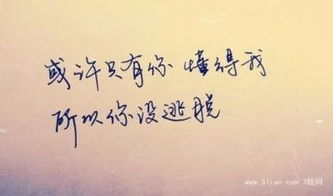 或许只有你 懂得我
所以你没逃脱
www.3lian.com 3联网